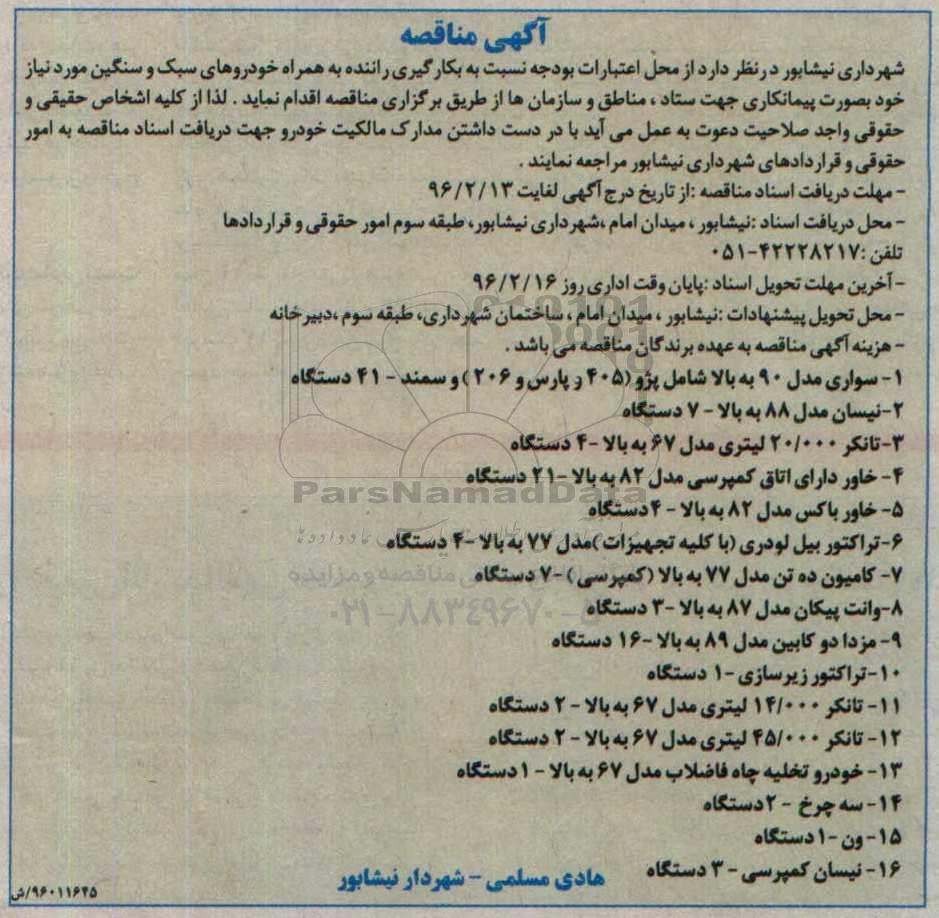 آگهی مناقصه
شهرداری نیشابور درنظر دارد از محل اعتبارات بودجه نسبت به بکارگیری راننده به همراه خودروهای سبک و سنگین مورد نیاز
خود بصورت پیمانکاری جهت ستاد ، مناطق و سازمان ها از طریق برگزاری مناقصه اقدام نماید . لذا از کلیه اشخاص حقیقی و
حقوقی واجد صلاحیت دعوت به عمل می آید با در دست داشتن مدارک مالکیت خودرو جهت دریافت اسناد مناقصه به امور
حقوقی و قراردادهای شهرداری نیشابور مراجعه نمایند .
- مهلت دریافت اسناد مناقصه :از تاریخ درج آگهی لغایت ۹۶/۲/۱۳
- محل دریافت اسناد :نیشابور ، میدان امام ،شهرداری نیشابور، طبقه سوم امور حقوقی و قراردادها
تلفن :۴۲۲۲۸۲۱۷-۰۵۱
- آخرین مهلت تحویل اسناد :پایان وقت اداری روز ۹۶/۲/۱۶
- محل تحویل پیشنهادات :نیشابور ، میدان امام ، ساختمان شهرداری، طبقه سوم ،دبیرخانه
- هزینه آگهی مناقصه به عهده برندگان مناقصه می باشد .
۱- سواری مدل ۹۰ به بالا شامل پژو (۴۰۵ و پارس و ۲۰۶ ) و سمند - ۴۱ دستگاه
۲-نیسان مدل ۸۸ به بالا - ۷ دستگاه
۳-تانکر ۲۰/۰۰۰ لیتری مدل ۶۷ به بالا -۴ دستگاه
۴- خاور دارای اتاق کمپرسی مدل ۸۲ به بالا -۲۱ دستگاه
ParsNamadData
۵- خاور باکس مدل ۸۲ به بالا - ۴دستگاه
۶-تراکتور بیل لودری (با کلیه تجهیزات )مدل ۷۷ به بالا -۴ دستگاه
۷- کامیون ده تن مدل ۷۷ به بالا (کمپرسی ) -۷ دستگاه
۸-وانت پیکان مدل ۸۷ به بالا -۳ دستگاه
۰۲۱-۸۸۳۴۹۶۷۰-۵
۹- مزدا دو کابین مدل ۸۹ به بالا -۱۶ دستگاه
۱۰-تراکتور زیرسازی -۱ دستگاه
۱۱- تانکر ۱۴/۰۰۰ لیتری مدل ۶۷ به بالا - ۲ دستگاه
۱۲- تانکر ۴۵/۰۰۰ لیتری مدل ۶۷ به بالا - ۲ دستگاه
۱۳- خودرو تخلیه چاه فاضلاب مدل ۶۷ به بالا - ۱دستگاه
۱۴- سه چرخ - ۲دستگاه
۱۵- ون -۱دستگاه
۱۶- نیسان کمپرسی - ۳ دستگاه
هادی مسلمی - شهردار نیشابور
۹۶۰۱۱۶۴۵/ش